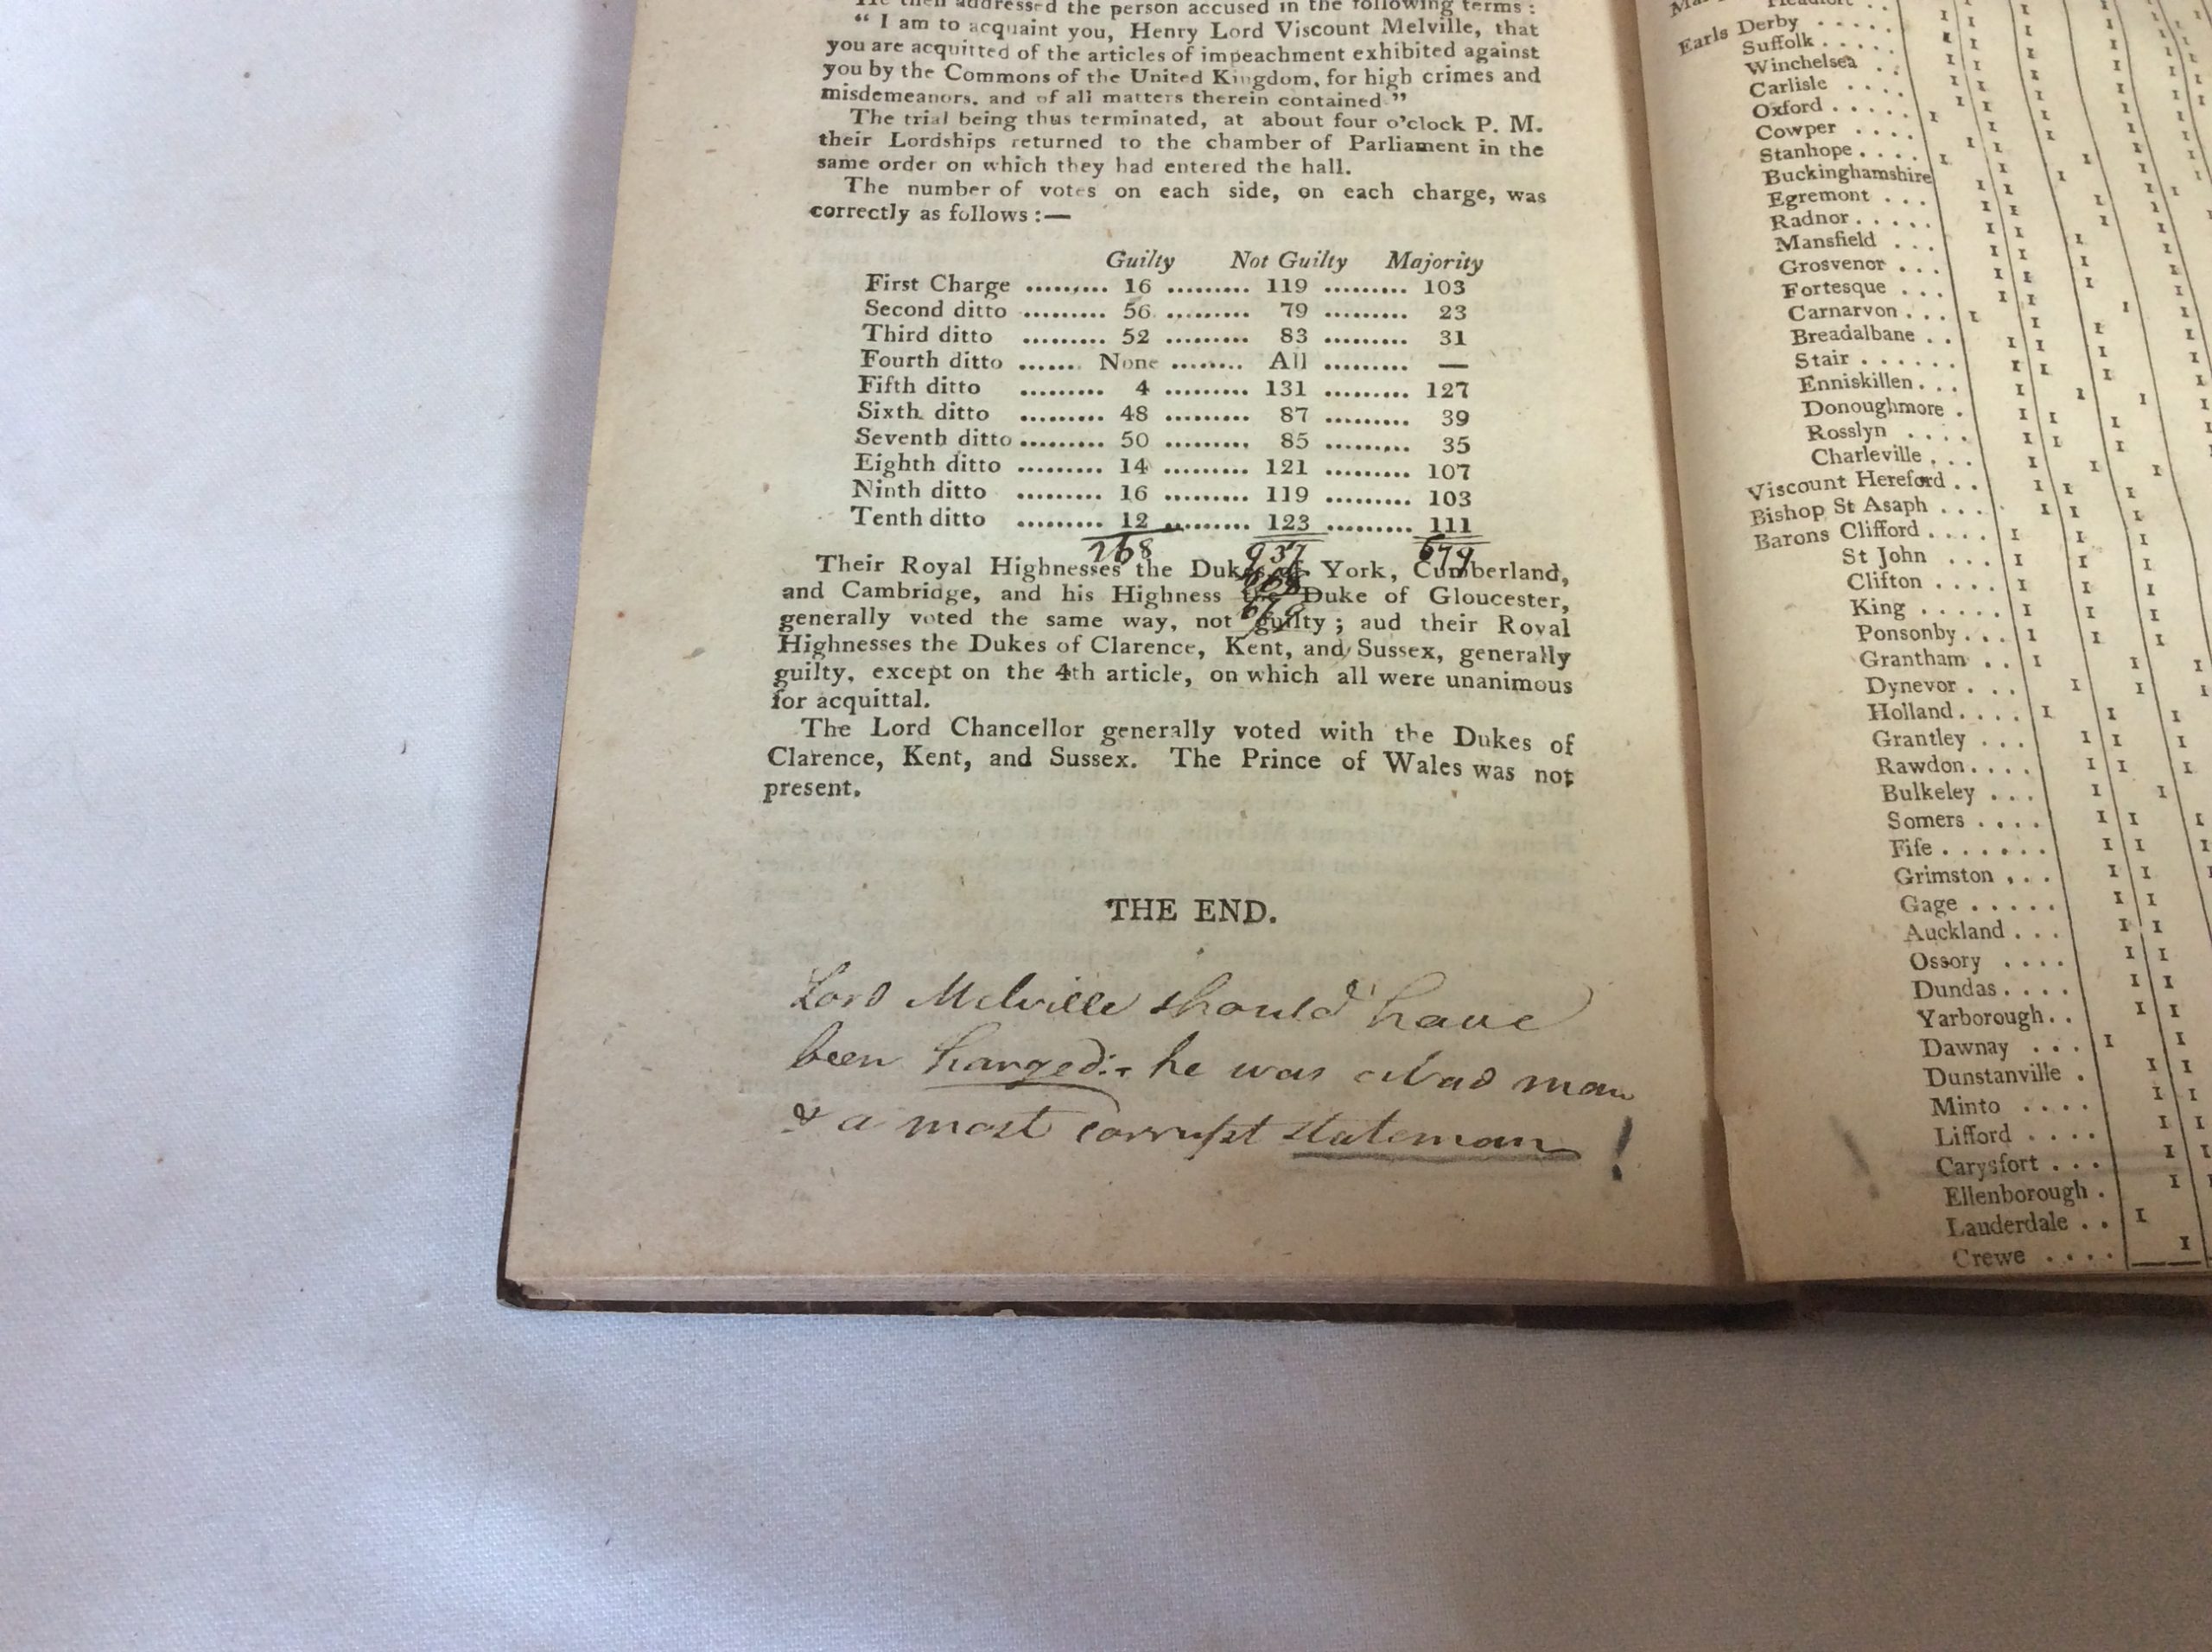 He then addressed the person accused in the following terms:
“ I am to acquaint you, Henry Lord Viscount Melville, that
you are acquitted of the articles of impeachment exhibited against
you by the Commons of the United Kingdom, for high crimes and
misdemeanors, and of all matters therein contained.”
The trial being thus terminated, at about four o’clock P. M.
their Lordships returned to the chamber of Parliament in the
same order on which they had entered the hall.
The number of votes on each side, on each charge, was
correctly as follows :—
Guilty Not Guilty Majority
First Charge ......... 16 ......... 119 ......... 103
Second ditto ......... 56 ......... 79 ......... 23
Third ditto ......... 52 ......... 83 ......... 31
Fourth ditto ...... None ........ All ......... —
Fifth ditto ......... 4 ......... 131 ......... 127
Sixth ditto ......... 48 ......... 87 ......... 39
Seventh ditto ......... 50 ......... 85 ......... 35
Eighth ditto ......... 14 ......... 121 ......... 107
Ninth ditto ......... 16 ......... 119 ......... 103
Tenth ditto ......... 12 ......... 123 ......... 111
268 937 679
Their Royal Highnesses the Dukes of York, Cumberland,
and Cambridge, and his Highness the Duke of Gloucester,
generally voted the same way, not guilty ; aud their Royal
Highnesses the Dukes of Clarence, Kent, and Sussex, generally
guilty, except on the 4th article, on which all were unanimous
for acquittal.
The Lord Chancellor generally voted with the Dukes of
Clarence, Kent, and Sussex. The Prince of Wales was not
present.
THE END.
Lord Melville should have
been hanged:- he was a bad man
& a most corrupt stateman !
Earls Derby . . . .
Suffolk . . . . .
Winchelsea . .
Carlisle . . . .
Oxford . . . .
Cowper . . . .
Stanhope . . . .
Buckinghamshire
Egremont . . .
Radnor . . . .
Mansfield . . .
Grosvenor . . .
Fortesque . . .
Carnarvon . . .
Breadalbane . .
Stair . . . . . .
Enniskillen . . .
Donoughmore .
Rosslyn . . . .
Charleville . . .
Viscount Hereford . .
Bishop St Asaph . . .
Barons Clifford . . . .
St John . . .
Clifton . . . .
King . . . . .
Ponsonby . . .
Grantham . .
Dynevor . . .
Holland . . . .
Grantley . . .
Rawdon . . . .
Bulkeley . . .
Somers . . . .
Fife . . . . . .
Grimston . . .
Gage . . . . .
Auckland . . .
Ossory . . . .
Dundas . . . .
Yarborough . .
Dawnay . . .
Dunstanville .
Minto . . . .
Lifford . . . .
Carysfort . . .
Ellenborough .
Lauderdale . .
Crewe . . . .